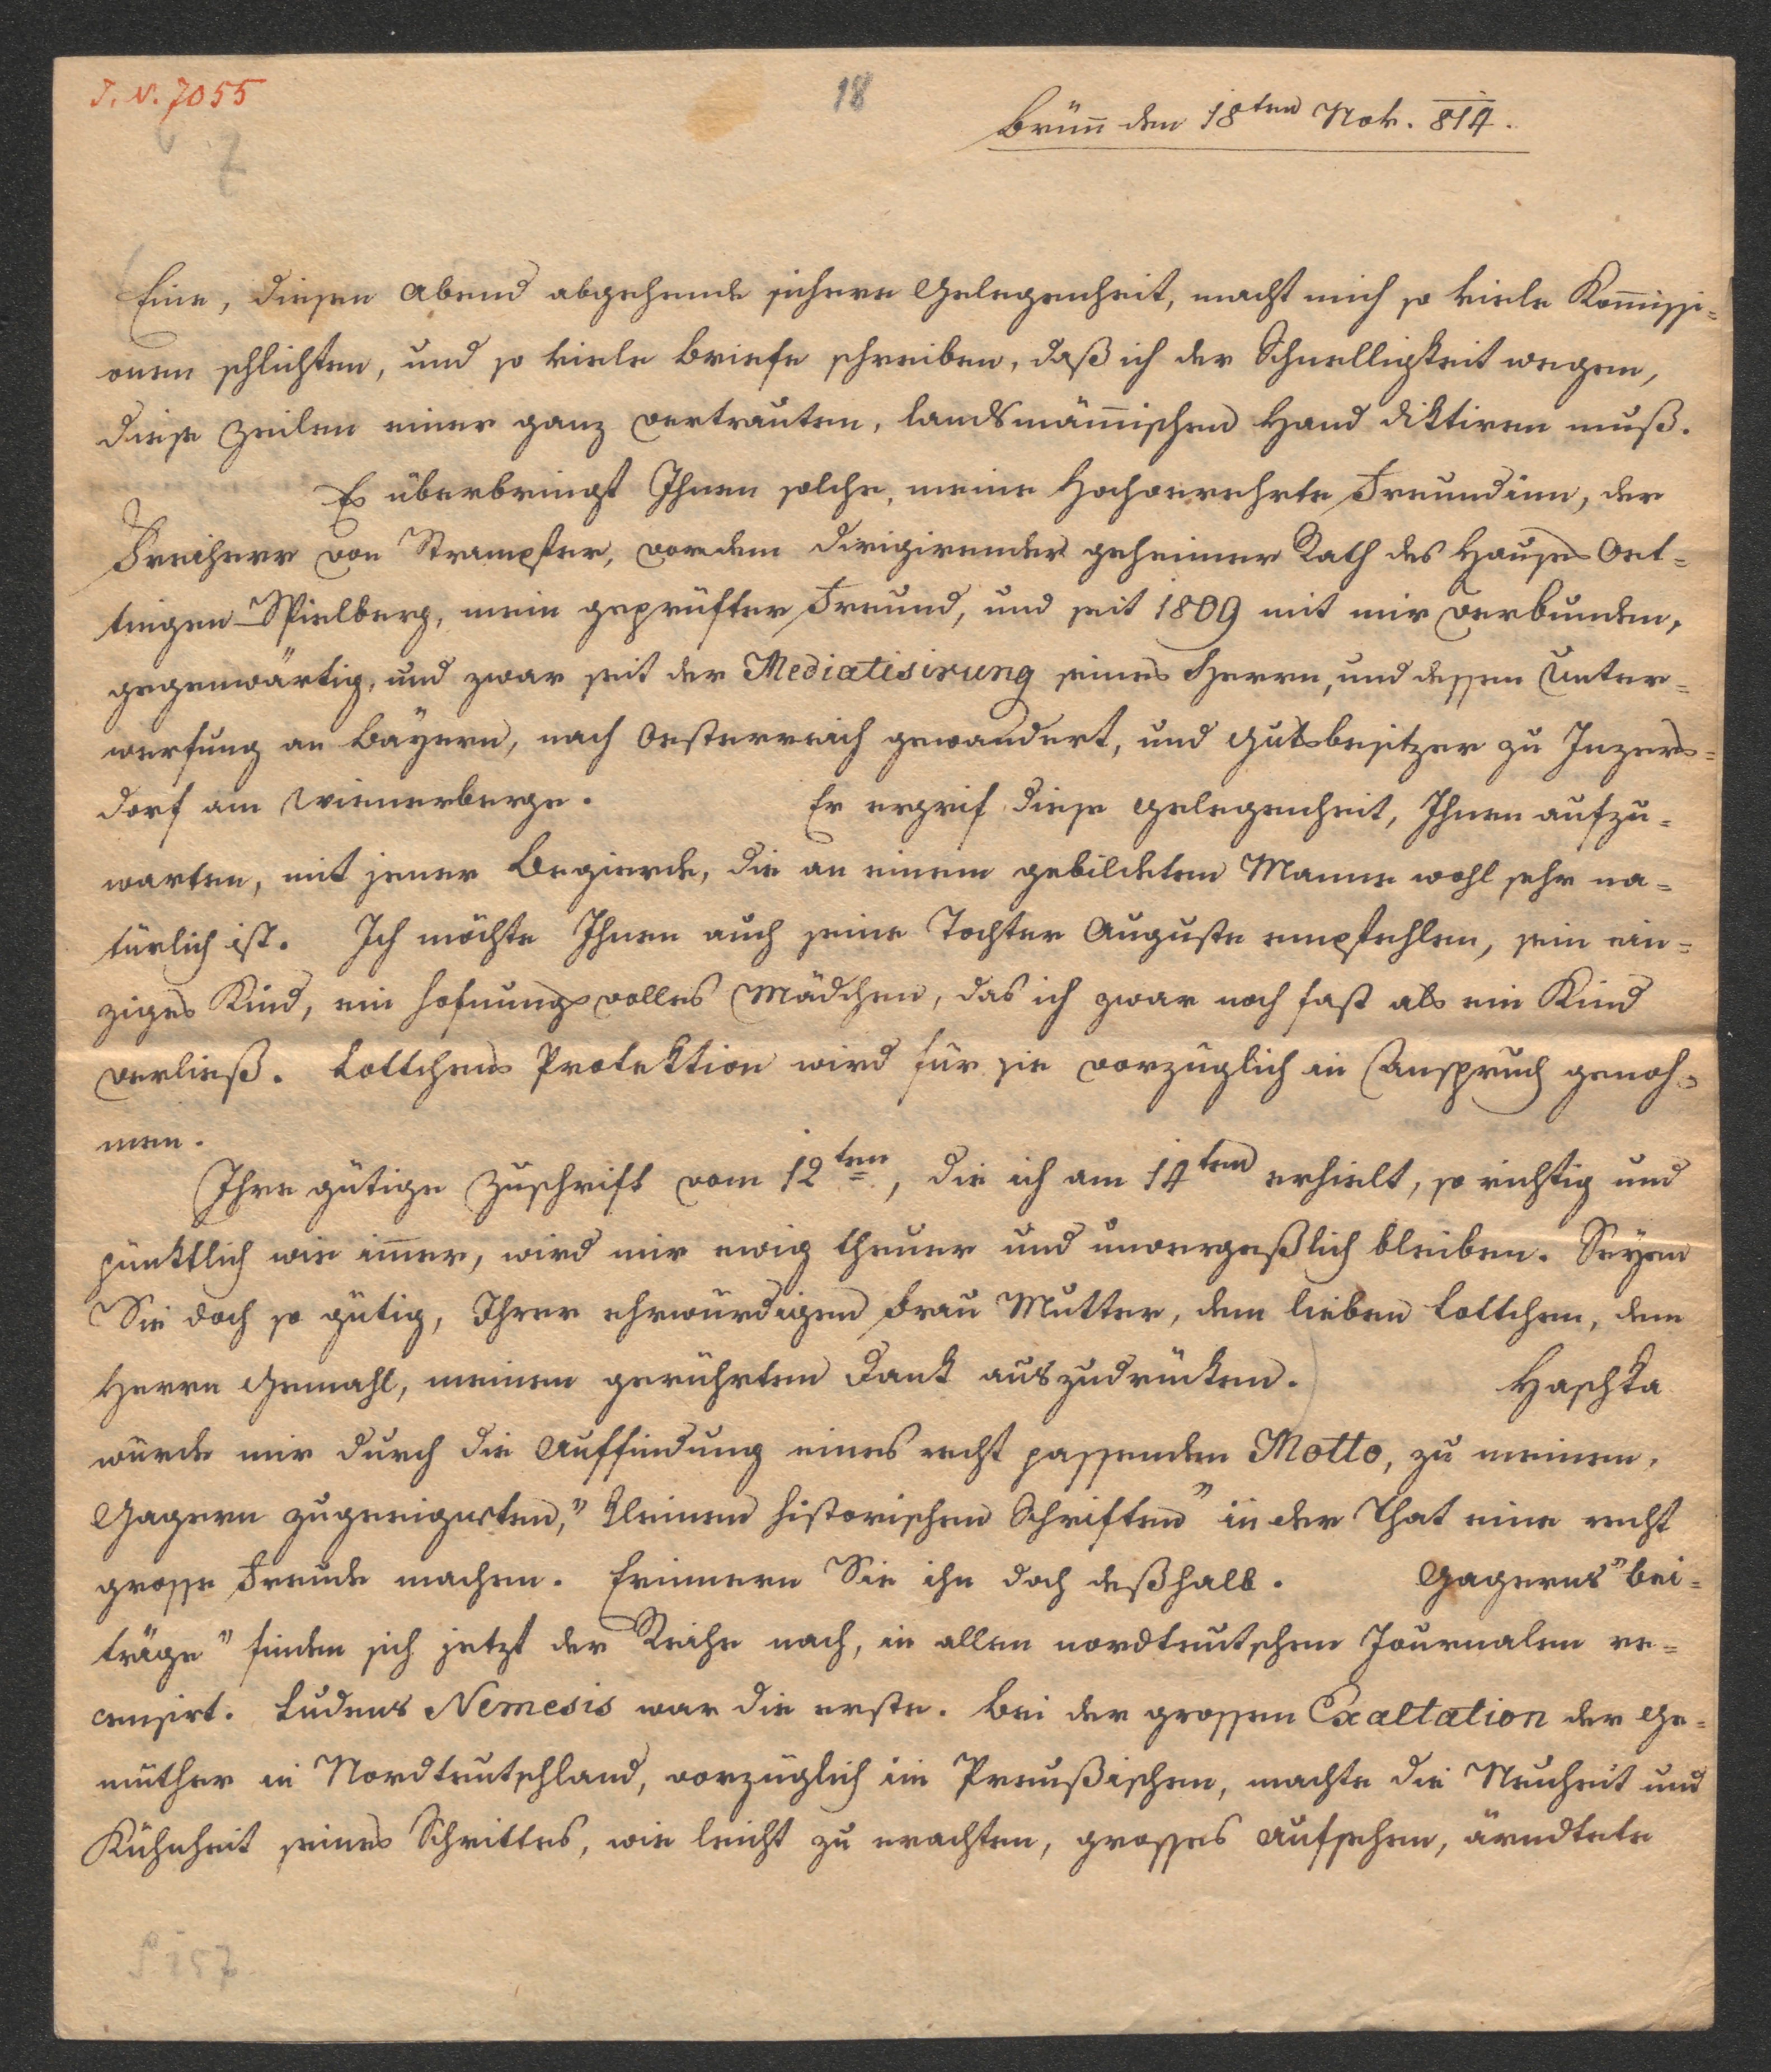 I. N. 7055
18
7
Brünn den 18ten Nov. 814.
Eine, diesen Abend abgehende sichere Gelegenheit, macht mich so viele Kom̅issi-
onen schlichten, und so viele Briefe schreiben, daß ich der Schnelligkeit wegen,
diese Zeilen einer ganz vertrauten, landsmän̅ischen Hand diktiren muß.
Es überbringt Ihnen solche, meine Hochverehrte Freundinn, der
Freiherr von Strampfer, vordem dirigirender geheimer Rath des Hauses Oet-
tingen-Spielberg, mein geprüfter Freund, und seit 1809 mit mir verbunden,
gegenwärtig, und zwar seit der Mediatisirung seines Herrn, und dessen Unter-
werfung an Bayern, nach Oesterreich gewandert, und Gutsbesitzer zu Inzers-
dorf am Wienerberge. Er ergrif diese Gelegenheit, Ihnen aufzu-
warten, mit jener Begierde, die an einem gebildeten Manne wohl sehr na-
türlich ist. Ich möchte Ihnen auch seine Tochter Auguste empfehlen, sein ein-
ziges Kind, ein hofnungsvolles Mädchen, das ich zwar noch fast als ein Kind
verließ. Lottchens Protektion wird für sie vorzüglich in Anspruch genoh-
men.
Ihre gütige Zuschrift vom 12ten, die ich am 14ten erhielt, so richtig und
pünktlich wie im̅er, wird mir ewig theuer und unvergeßlich bleiben. Seyen
Sie doch so gütig, Ihrer ehrwürdigen Frau Mutter, dem lieben Lottchen, dem
Herrn Gemahl, meinen gerührten Dank auszudrücken. Haschka
würde mir durch die Auffindung eines recht passenden Motto, zu meinen,
Gagern zugeeigneten, "kleinen historischen Schriften" in der That eine recht
grosse Freude machen. Erinnern Sie ihn doch deßhalb. Gagerns "Bei-
träge" finden sich jetzt der Reihe nach, in allen nordteutschen Journalen re-
censirt. Ludens Nemesis war die erste. Bei der grossen Exaltation der Ge-
müther in Nordteutschland, vorzüglich im Preußischen, machte die Neuheit und
Kühnheit seines Schrittes, wie leicht zu erachten, grosses Aufsehen, ärndtete